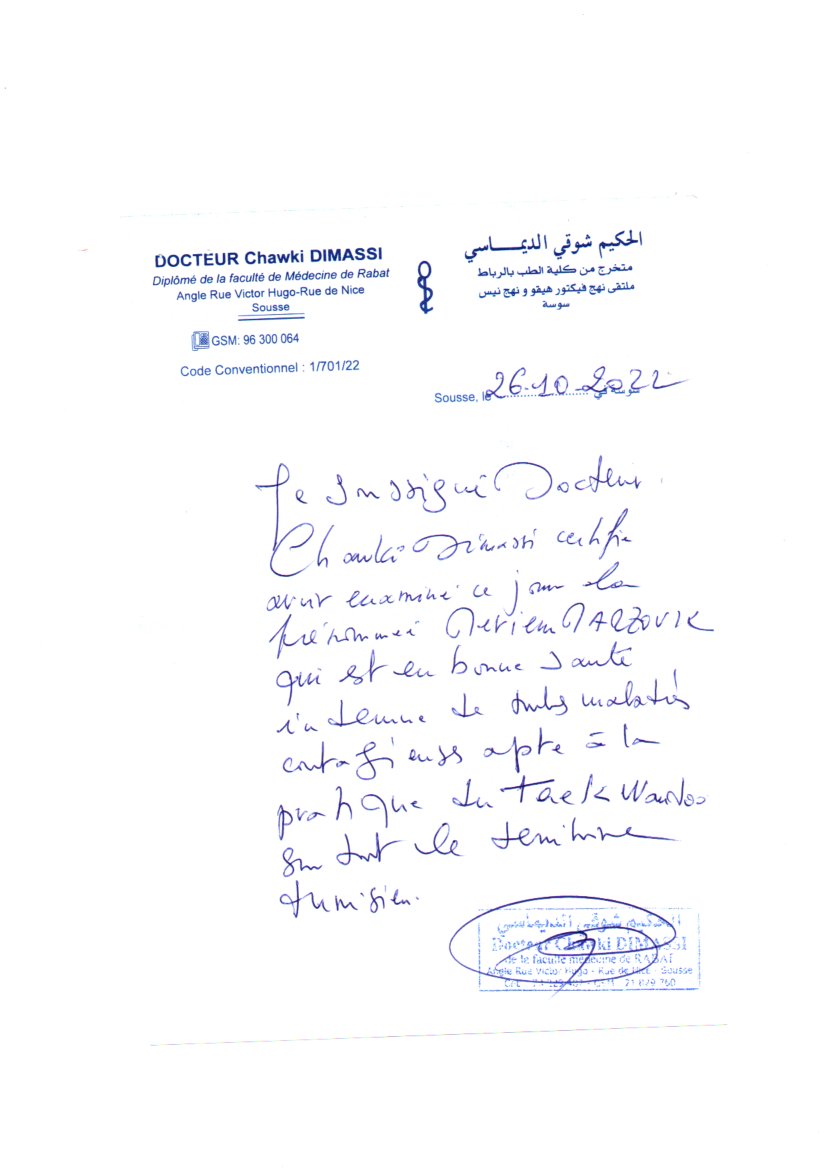 DOCTEUR Chawki DIMASSI
Diplômé de la faculté de Médecine de Rabat
Angle Rue Victor Hugo-Rue de Nice
Sousse
GSM: 96 300 064
Code Conventionnel : 1/701/22
الحكيم شوقي الديمـــاسي
متخرج من كلية الطب بالرباط
ملتقى نهج فيكتور هيقو و نهج نيس
سوسة
Sousse, le 26-10-2022 سوسة في
Je soussigné Docteur
Chawki Dimassi certifie
avoir examiné ce jour la
prénommée Meriem MARZOUK
qui est en bonne santé
indemne de toutes maladies
contagieuses apte à la
pratique du Taekwondo
sur tout le territoire
tunisien.
الحكيم شوقي الديماسي
Docteur Chawki DIMASSI
de la faculté médecine de RABAT
Angle Rue Victor Hugo - Rue de Nice - Sousse